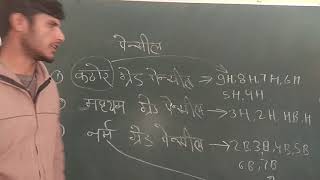 पेन्सील
कठोर ग्रेड पेन्सील → 9H, 8H, 7H, 6H
5H, 4H
मध्यम ग्रेड पेन्सील → 3H, 2H, HB, H
नर्म ग्रेड पेन्सील → 2B, 3B, 4B, 5B
6B, 7B